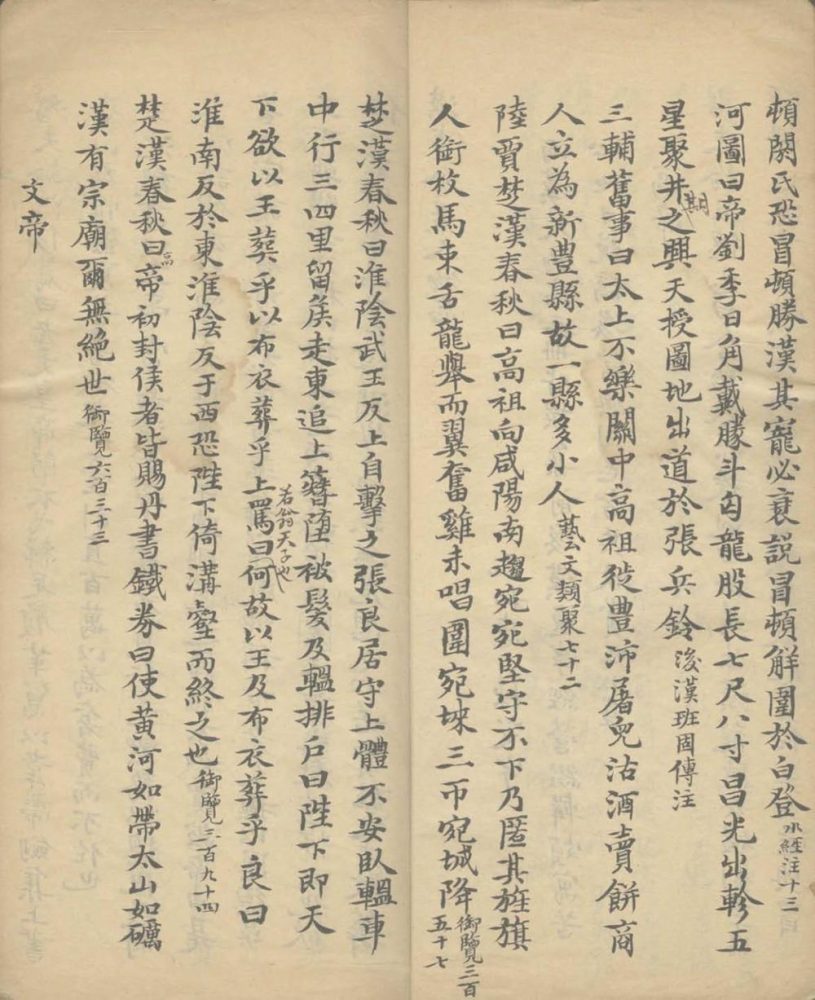 頓閼氏恐冒頓勝漢其寵必衰說冒頓解圍於白登水經注十三
河圖曰帝劉季日角戴勝斗匈龍股長七尺八寸昌光出軫五
星聚井期之興天授圖地出道於張兵鈐後漢班固傳注
三輔舊事曰太上不樂關中高祖徙豐沛屠兒沽酒賣餅商
人立為新豐縣故一縣多小人藝文類聚七十二
陸賈楚漢春秋曰高祖向咸陽南趨宛宛堅守不下乃匿其旌旗
人銜枚馬束舌龍舉而翼奮雞未唱圍宛城三帀宛城降御覽三百五十七
楚漢春秋曰淮陰武王反上自擊之張良居守上體不安臥轀車
中行三四里留侯走東追上簪墮被髮及轀排戶曰陛下即天
下欲以王葬乎以布衣葬乎上罵曰若翁天子也何故以王及布衣葬乎良曰
淮南反於東淮陰反于西恐陛下倚溝壑而終之也御覽三百九十四
楚漢春秋曰高帝初封侯者皆賜丹書鐵券曰使黃河如帶太山如礪
漢有宗廟爾無絕世御覽六百三十三
文帝